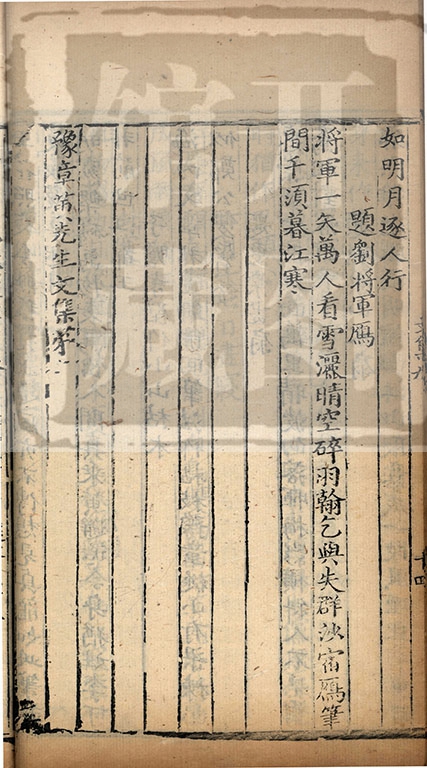 如明月逐人行
題劉將軍鴈
將軍一矢萬人看雪灑晴空碎羽翰乞與失群沙宿鴈筆
間千頃暮江寒
豫章黃先生文集第
十四